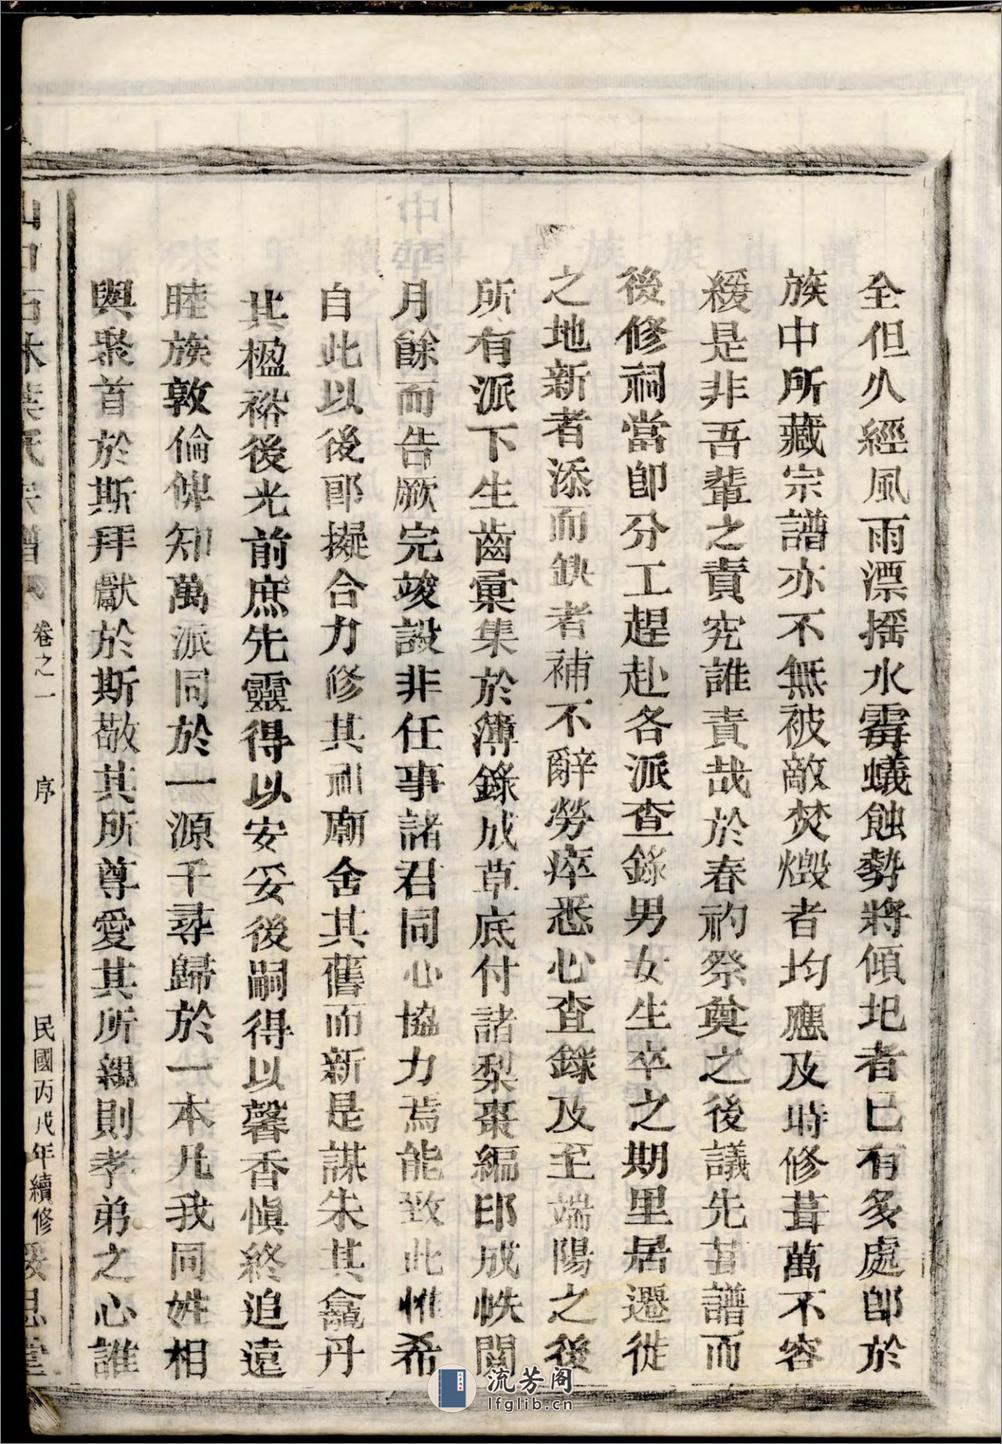 全但久經風雨漂搖水霉蟻蝕勢將傾圮者已有多處卽於
族中所藏宗譜亦不無被敵焚燬者均應及時修葺萬不容
緩是非吾輩之責究誰責哉於春礿祭奠之後議先葺譜而
後修祠當卽分工趕赴各派查錄男女生卒之期里居遷徙
之地新者添而缺者補不辭勞瘁悉心查錄及至端陽之後
所有派下生齒彙集於簿錄成草底付諸梨棗編印成帙閱
月餘而告厥完竣設非任事諸君同心協力焉能致此惟希
自此以後郎擬合力修其祖廟舍其舊而新是謀朱其龕丹
其楹裕後光前庶先靈得以安妥後嗣得以馨香愼終追遠
睦族敦倫俾知萬派同於一源千尋歸於一本凡我同姓相
與聚首於斯拜獻於斯敬其所尊愛其所親則孝弟之心誰
氏宗譜 卷之一 序 民國丙戌年續修 思堂
流芳阁
lfglib.cn